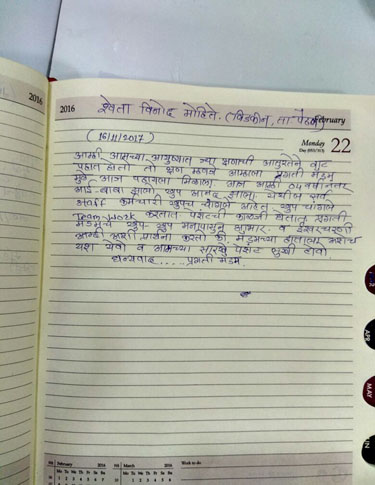 2016
2016
श्वेता विनोद मोहिते. (बिडकीन, ता. पैठण)
February
(16/11/2017)
Monday 22
आम्ही आमच्या आयुष्यात ज्या क्षणाची आतुरतेने वाट
पहात होतो तो क्षण म्हणजे आम्हाला प्रगती मॅडम
मुळे आज पहायला मिळाला. आज आम्ही 04 वर्षानंतर
आई-बाबा झालो खुप आनंद झाला. येथील सर्व
staff कर्मचारी खुपच चांगले आहेत. खुप चांगले
Team work करतात. पेशंटची काळजी घेतात. प्रगती
मॅडमचे खुप-खुप मनापासुन आभार. व ईश्वरचरणी
आम्ही अशी प्रार्थना करतो की मॅडमच्या हाताला असेच
यश येवो व आमच्या सारखे पेशंट सुखी होवो.
धन्यवाद ..... प्रगती मॅडम
APR
MAY
February 2016
March 2016
Work to do
Mo Tu We Th Fr Sa Su
Mo Tu We Th Fr Sa Su